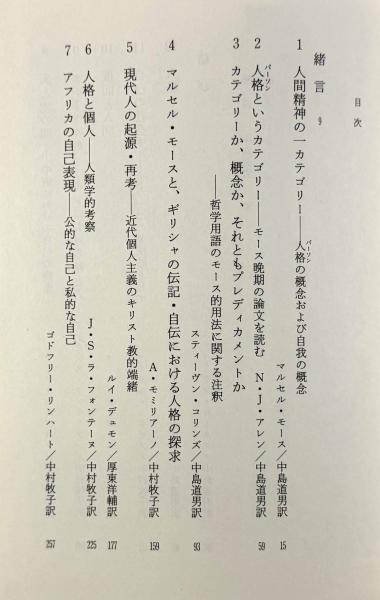 目次
緒言 9
1 人間精神の一カテゴリー——人格の概念および自我の概念
パーソン
マルセル・モース／中島道男訳 15
2 人格というカテゴリー——モース晩期の論文を読む N・J・アレン／中島道男訳 59
パーソン
3 カテゴリーか、概念か、それともプレディカメントか
——哲学用語のモース的用法に関する注釈
スティーヴン・コリンズ／中島道男訳 93
4 マルセル・モースと、ギリシャの伝記・自伝における人格の探求
A・モミリアーノ／中村牧子訳 159
5 現代人の起源・再考——近代個人主義のキリスト教的端緒
ルイ・デュモン／厚東洋輔訳 177
6 人格と個人——人類学的考察
J・S・ラ・フォンテーヌ／中村牧子訳 225
7 アフリカの自己表現——公的な自己と私的な自己
ゴドフリー・リンハート／中村牧子訳 257